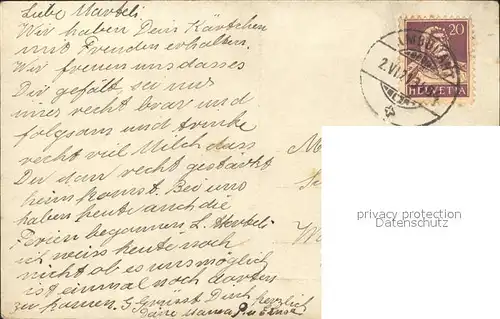 Liebe Marteli
Wir haben Dein Kärtchen
mit Freuden erhalten.
Wir freuen uns dass es
Dir gefällt, sei nur
immer recht brav und
folgsam und trinke
recht viel Milch dass
Du dan recht gestärkt
heim komst. Bei uns
haben heute auch die
Ferien begonnen. L. Marteli
ich weiss heute noch
nicht ob es uns möglich
ist einmal noch dorten
zu komen. Grüsst Dich herzlich
Deine Mama
20
HELVETIA
2.VI
privacy protection
www.oldthing.de